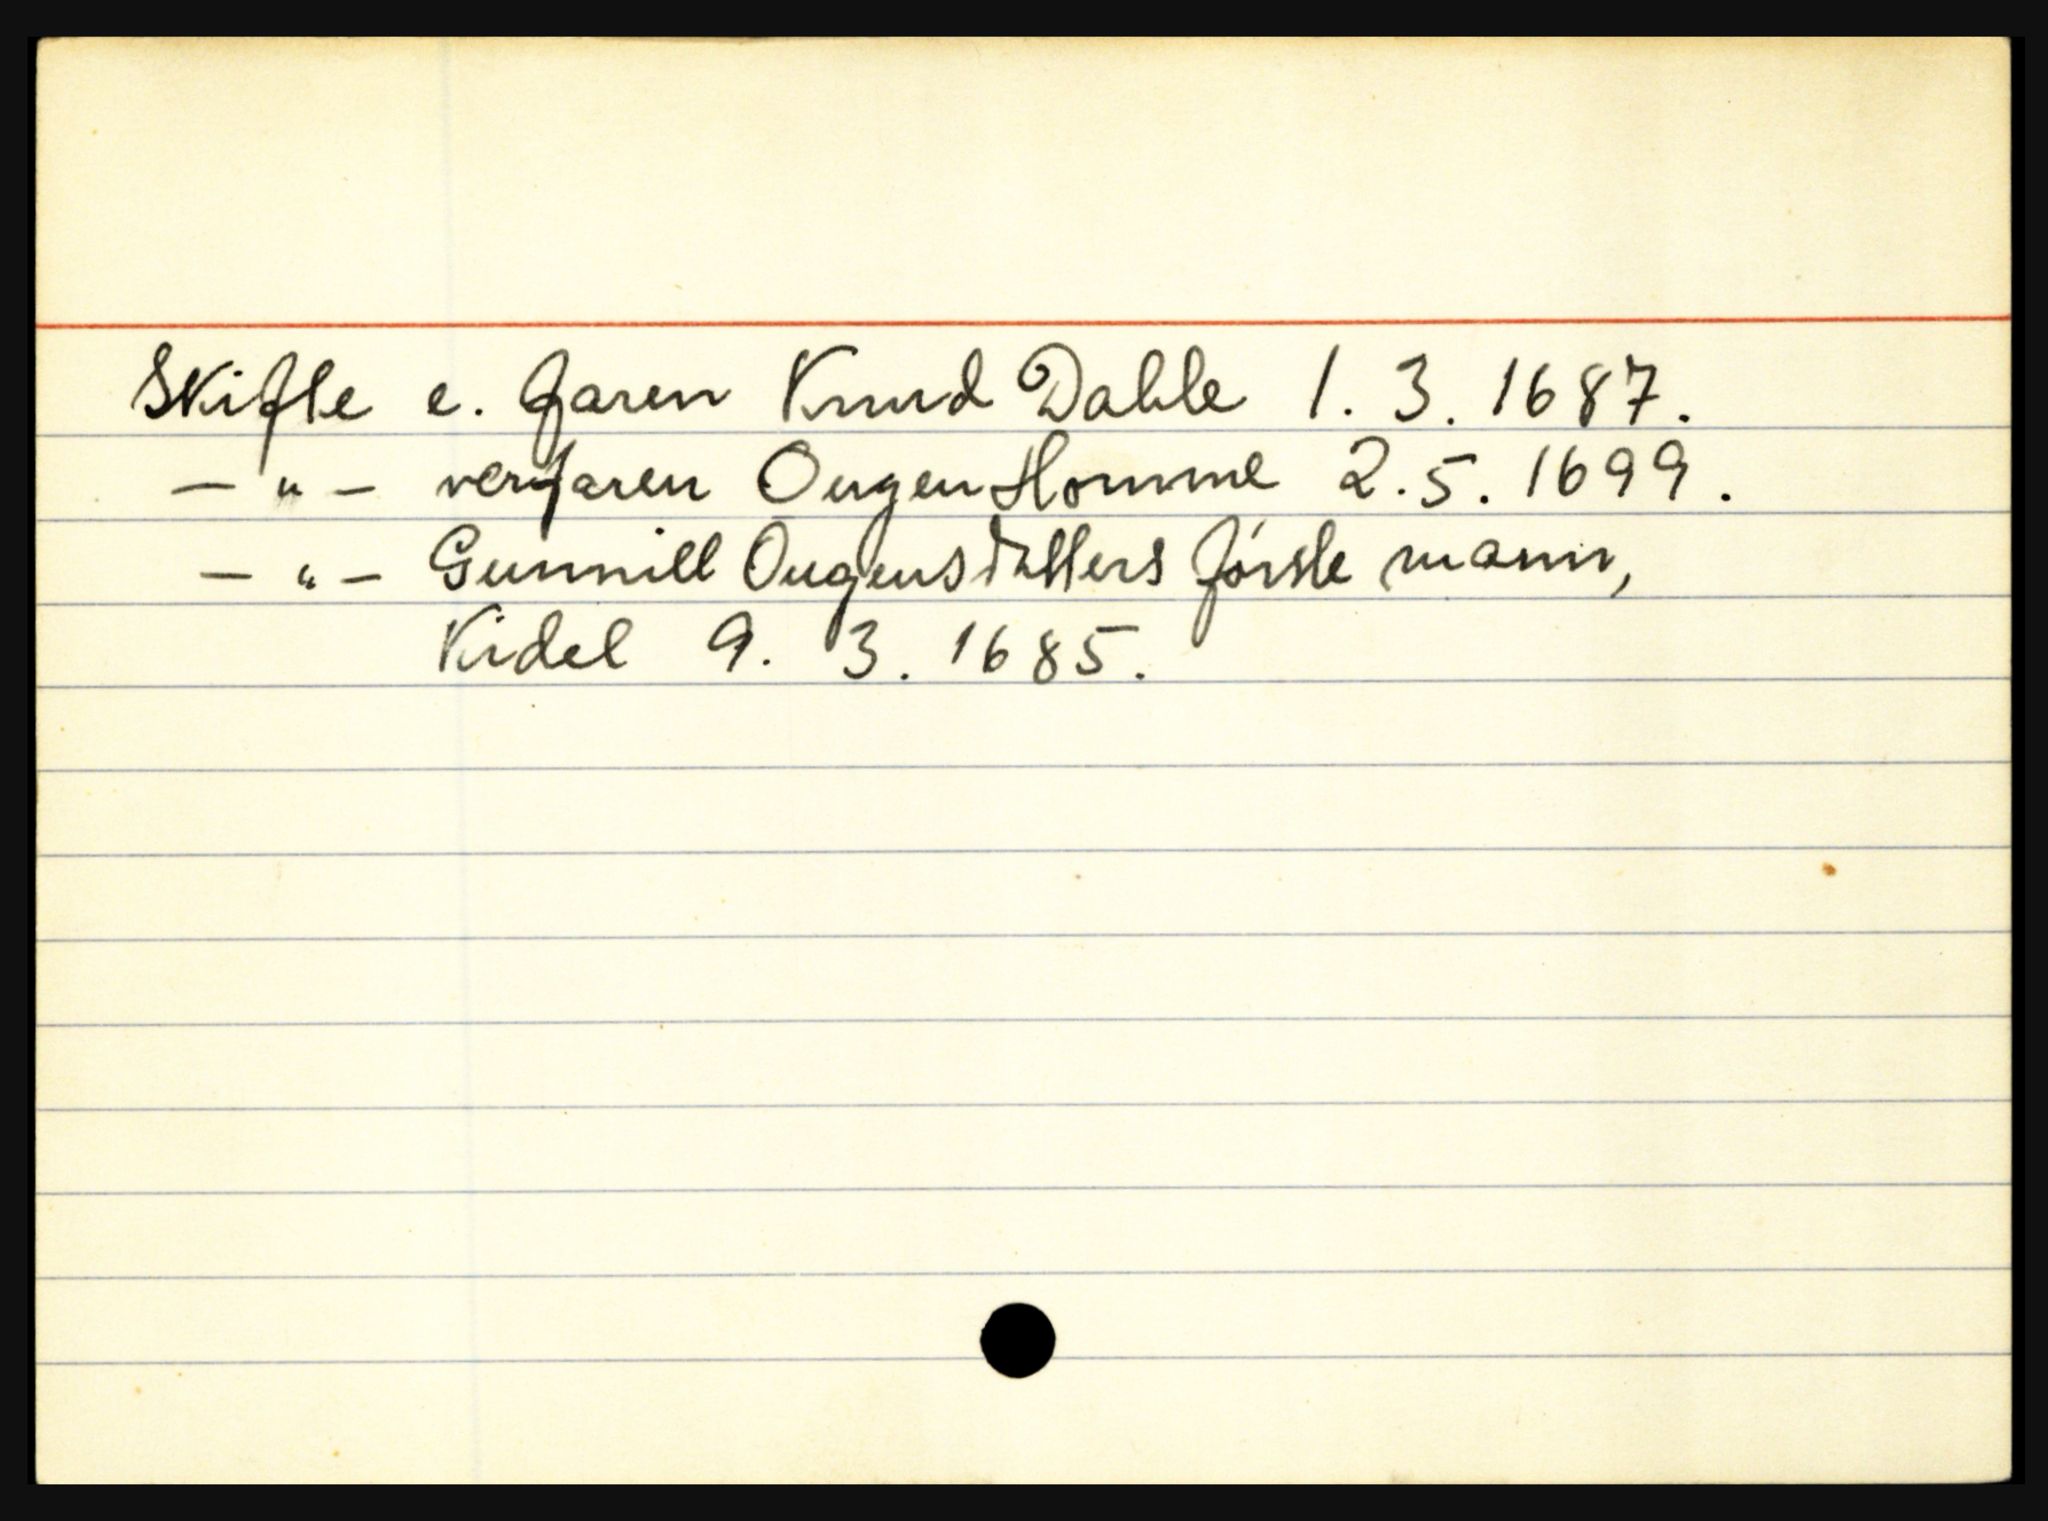 Skifte e. faren Knud Dahle 1. 3. 1687.
— " — verfaren Ougen Homme 2. 5. 1699.
— " — Gunnill Ougensdatters første mann,
Kidel 9. 3. 1685.